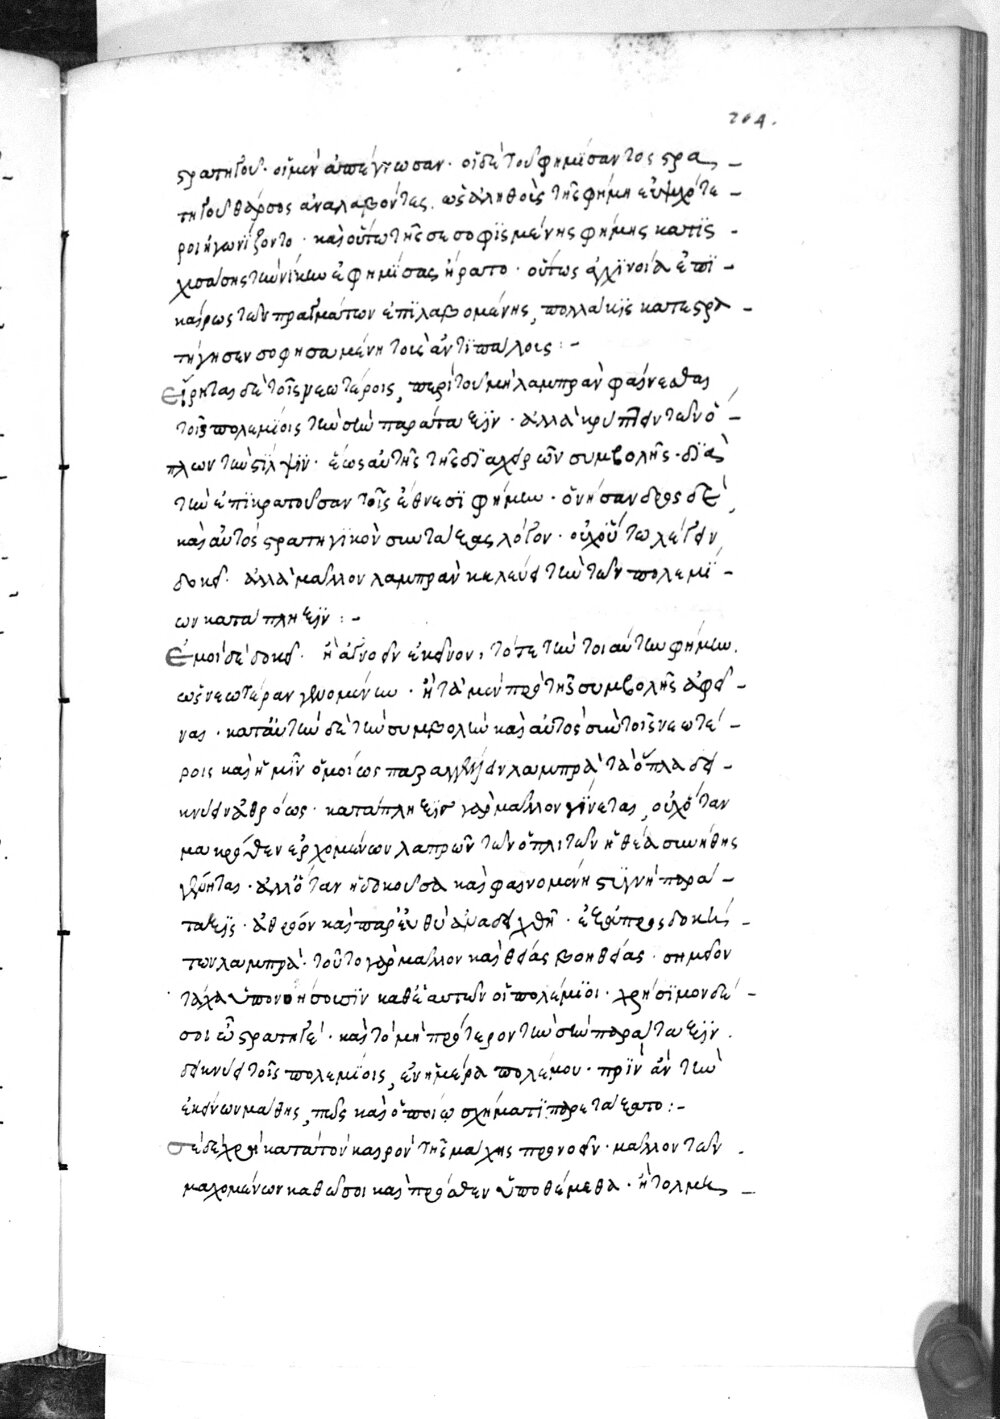 204.
στρατηγοῦ· οἱ μὲν ἀπέγνωσαν· οἱ δὲ τοῦ φημίσαντος στρα
τηγοῦ θάρσος ἀναλαβόντες, ὡς ἀληθοῖ τῆ φήμη εὐψυχότε
ροι ἠγωνίζοντο· καὶ οὕτω τῆς σεσοφισμένης φήμης κατϊσ
χυσάσης τὴν νίκην ἐφημίσας ἤρατο· οὕτως ἀγχίνοια ἐπϊ
καίρως τῶν πραγμάτων ἐπϊλαβομένης, πολλακϊς κατεστρα
τήγησεν σοφησαμένη τοὺς ἀντϊπάλους :-
Εἴρηται δὲ τοῖς νεωτέροις, περὶ τοῦ μὴ λαμπρὰν φαίνεσθαι
τοῖς πολεμίοις τὴν σὴν παράταξϊν· ἀλλὰ κρύπτειν τῶν ὅ
πλων τὴν στίλψϊν· ἕως αὐτῆς τῆς διὰ χειρῶν συμβολῆς· διὰ
τὴν ἐπϊκρατοῦσαν τοῖς ἔθνεσϊ φήμην· ὀνήσανδρος δὲ
καὶ αὐτὸς στρατηγϊκὸν συντάξας λόγον· οὐχ οὕτω λέγειν
δοκεῖ· ἀλλὰ μᾶλλον λαμπρὰν κελεύει τὴν τῶν πολεμϊ
ων κατάπληξϊν :-
Ἐμοὶ δὲ δοκεῖ· ἢ ἀγνοεῖν ἐκεῖνον, τότε τὴν τοιαύτην φήμην,
ὡς νεωτέραν γενομένην· ἢ τὰ μὲν πρὸ τῆς συμβολῆς ἀφεῖ
ναι· κατ' αὐτὴν δὲ τὴν συμβολὴν καὶ αὐτὸς σὺν τοῖς νεωτέ
ροις καὶ ἡμῖν ὁμοίως παραγγέλειν λαμπρὰ τὰ ὅπλα δει
κνύειν ἀθρόως· κατάπληξϊς γὰρ μᾶλλον γίνεται, οὐχ ὅταν
μακρόθεν ἐρχομένων λαπρῶν τῶν ὁπλιτῶν ἡ θέα συνήθης
γένηται· ἀλλ' ὅταν ἡ δοκοῦσα καὶ φαινομένη στϊγνὴ παρά
ταξϊς· ἀθρόον καὶ παρευθὺ ἀναδειχθῆ· ἐξ ἀπροσδοκή
των λαμπρά· τοῦτο γὰρ μᾶλλον καὶ θείας βοηθείας· σημεῖον
τάχα ὑπονοήσουσϊν καθ' ἑαυτῶν οἱ πολέμϊοι· χρήσϊμον δέ
σοι ὦ στρατηγέ· καὶ τὸ μὴ πρότερον τὴν σὴν παράταξϊν
δεικνύειν τοῖς πολεμίοις, ἐν ἡμέρα πολέμου· πρὶν ἂν τὴν
ἐκείνων μάθης, πῶς καὶ ὁποίω σχήματϊ παρετάξατο :-
Σὲ δὲ χρὴ κατὰ τὸν καιρὸν τῆς μάχης προνοεῖν· μᾶλλον τῶν
μαχομένων καθώς σοι καὶ πρόσθεν ὑποθέμεθα· ἢ τολμᾶς